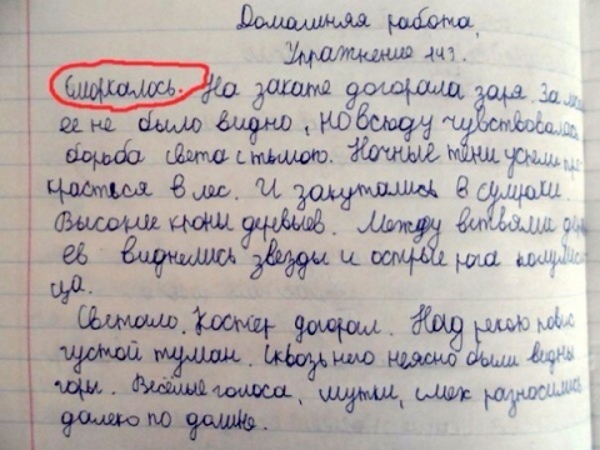 Домашняя работа.
Упражнение 143.
Сморкалось. На закате догорала заря. За
ее не было видно, но всюду чувствовалась
борьба света с тьмою. Ночные тени успели про-
красться в лес. И закутались в сумраки
Высокие кроны деревьев. Между ветвями дерев
ев виднелись звезды и острые рога полумеся
ца.
Светало. Костер догорал. Над рекою повис
густой туман. Сквозь него неясно были видны
горы. Весёлые голоса, шутки, смех разносились
далеко по долине.